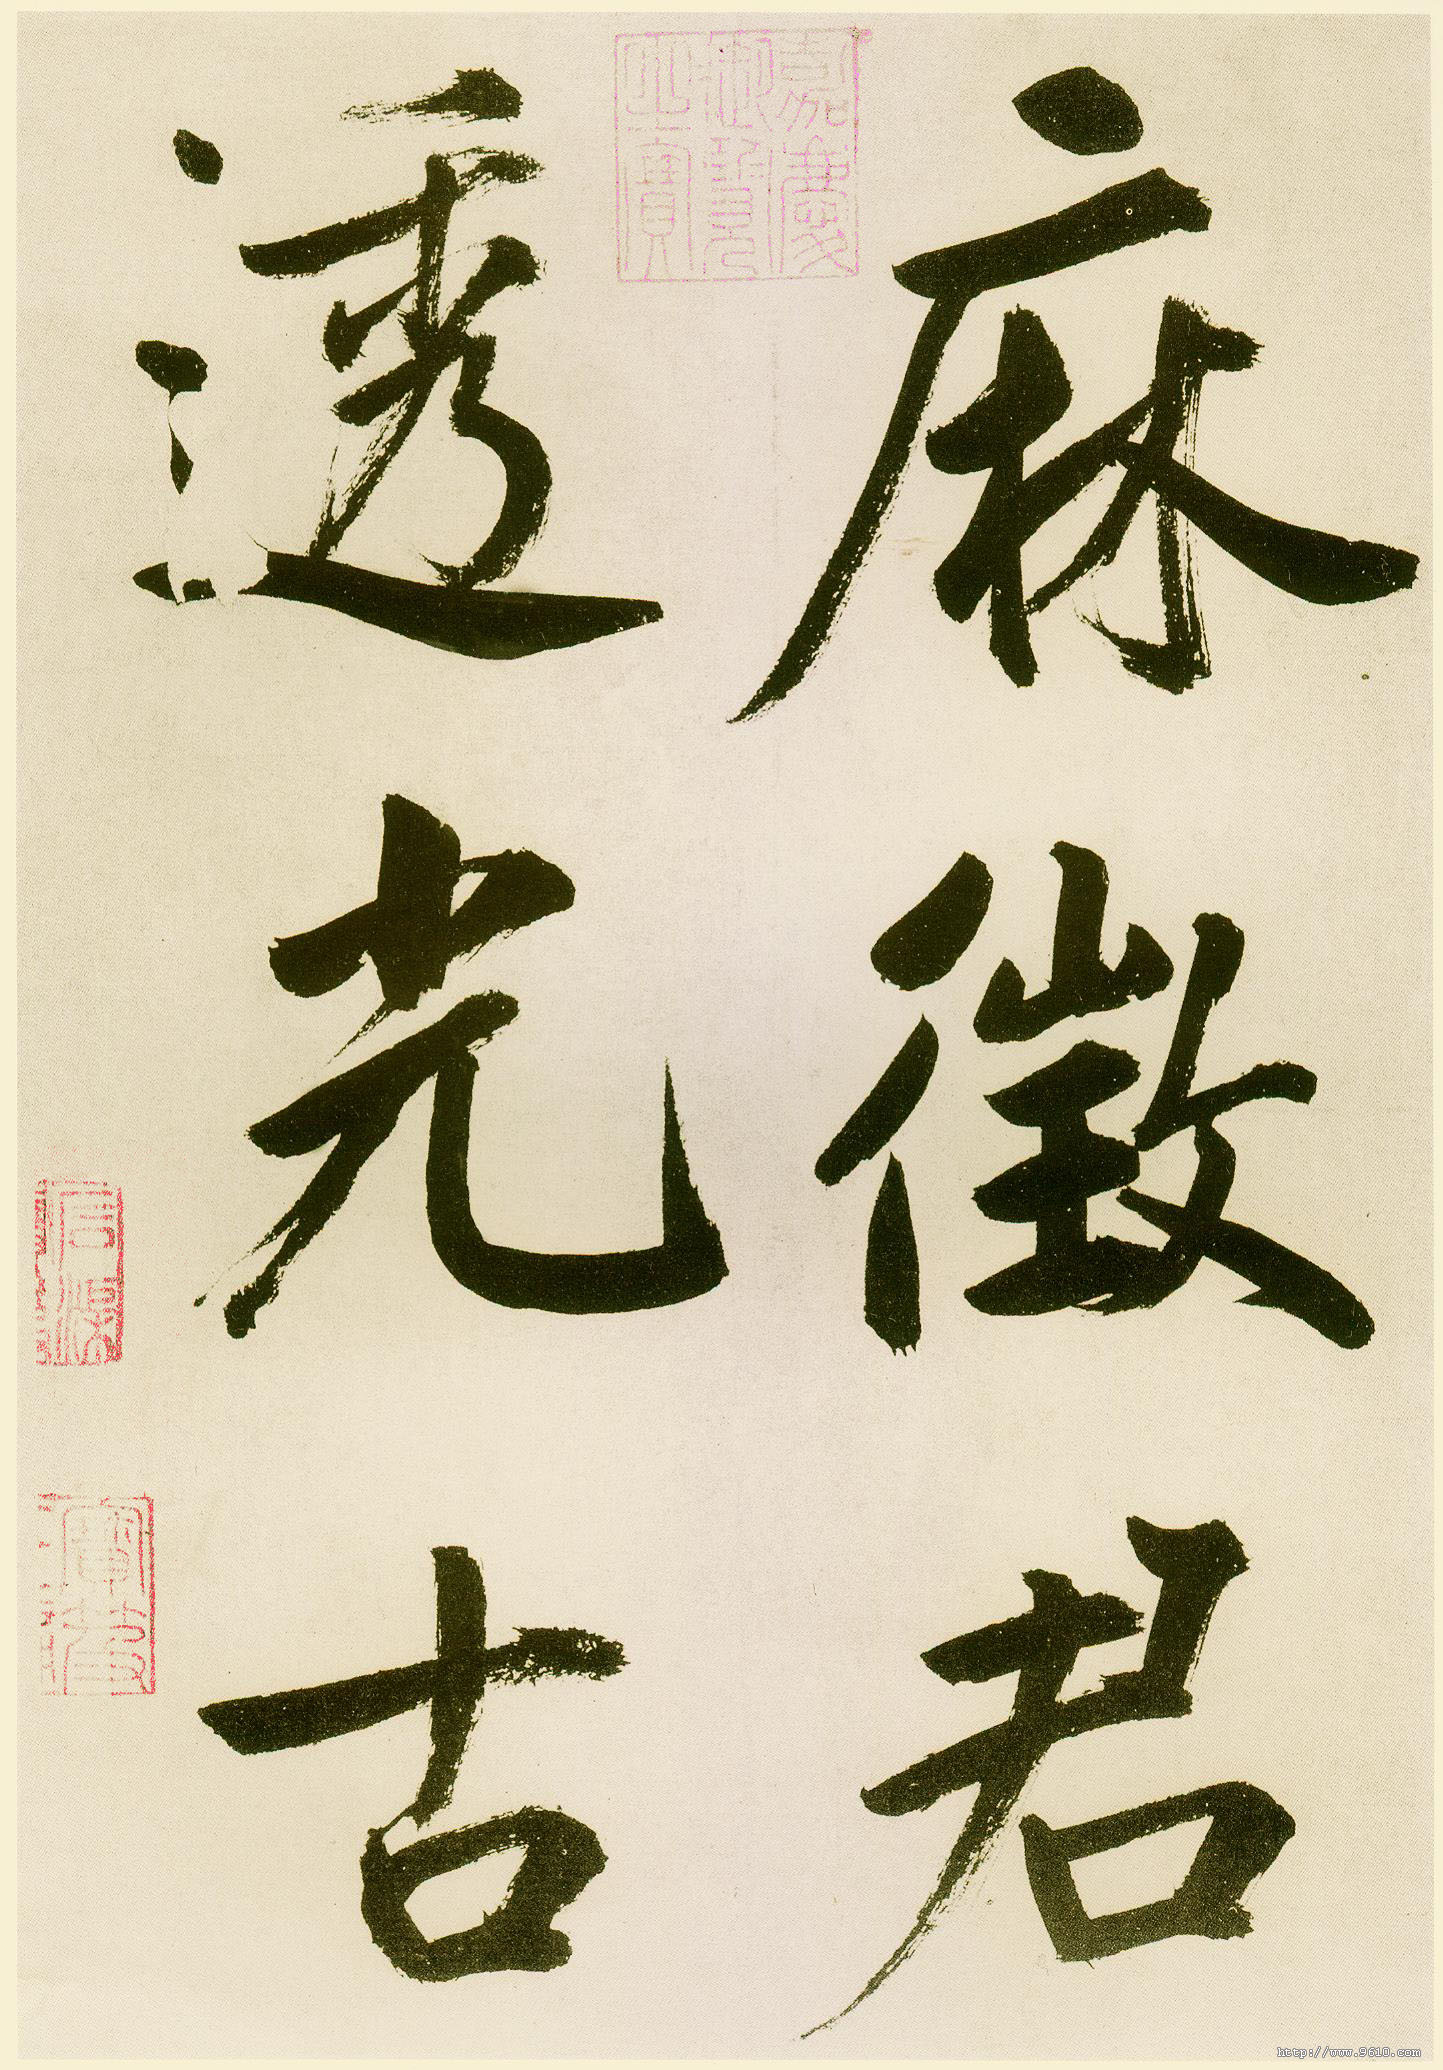 麻徵君
透光古
嘉慶
御覽
之寶
http://www.9610.com